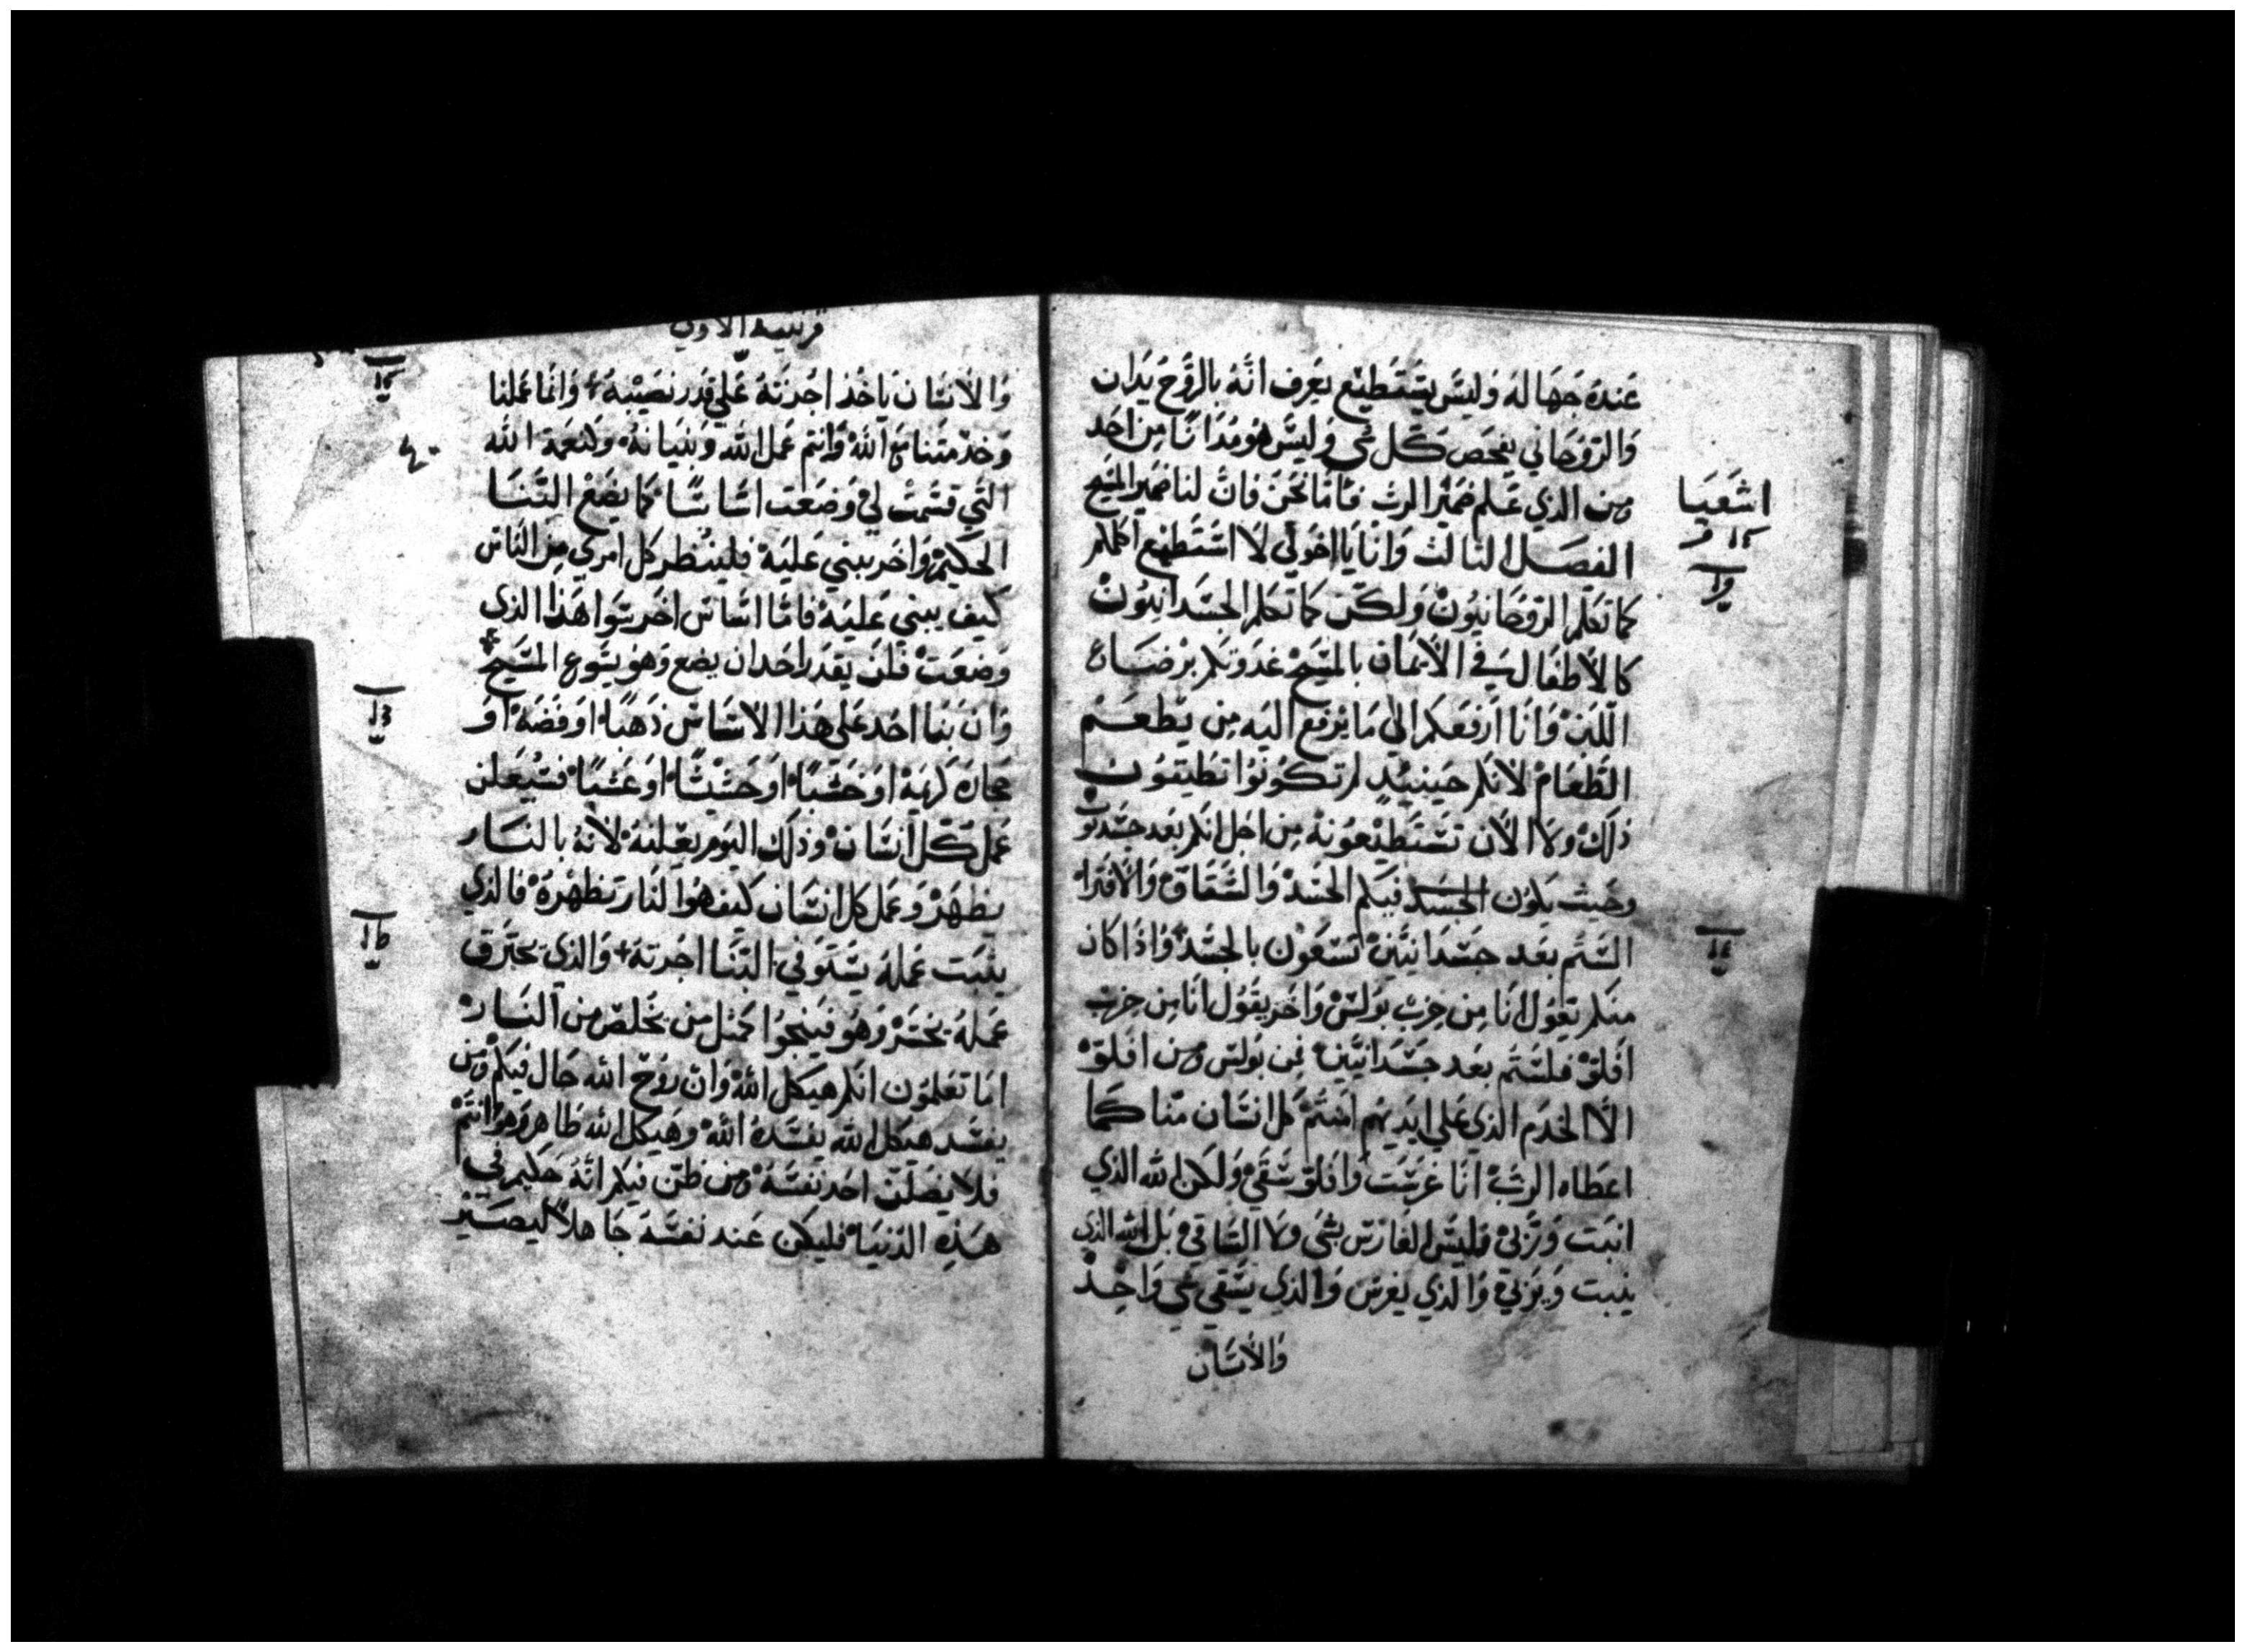 عنده جهاله وليس يستطيع يعرف انه بالروح يدان
والروحاني يفحص كل شي وليس هو مدانا من احد
ومن الذي علم ضمير الرب فاما نحن فان لنا ضمير المسيح
الفصل الثالث وانا يا اخوتي لا استطيع اكلمكم
كما تكلم الروحانيون ولكن كما تكلم الجسدانيون
كالاطفال في الايمان بالمسيح غدوتكم برضاعة
اللبن وانا ارفعكم الى ما يرفع اليه من يطعم
الطعام لانكم حينيذ لم تكونوا تطيقون
ذلك ولا الان تستطيعونه من اجل انكم بعد جسديون
وحيث يكون الجسد فيكم الحسد والشقاق والافترا
الستم بعد جسدانيين تسعون بالجسد واذا كان
منكم يقول انا من حزب بولس واخر يقول انا من حزب
افلو فلستم بعد جسدانيين فمن بولس ومن افلو
الا الخدم الذي على ايديهم امنتم كل انسان منا كما
اعطاه الرب انا غرست وافلو سقي ولكن الله الذي
انبت وربي فليس الغارس بشي ولا الساقي بل الله الذي
ينبت ويربي والذي يغرس والذي يسقي شي واحد
والانسان
اشعيا
قرنتيه الاولي
والانسان ياخذ اجرته علي قدر نصيبه + وانما عملنا
وخدمتنا مع الله وانتم عمل الله وبنيانه ولنعمة الله
التي قسمت لي وضعت اساسا كما يضع البنا
الحكيم واخر يبني عليه فلينظر كل امري من الناس
كيف يبني عليه فاما اساس اخر سوا هذا الذي
وضعت فلن يقدر احد ان يضع وهو يسوع المسيح
وان بنا احد على هذا الاساس ذهبا او فضه او
حجاره كريمة او خشبا او حشيشا او عشبا فسيعلن
عمل كل انسان وذلك اليوم يعلنه لانه بالنار
يظهر وعمل كل انسان كيف هو النار تظهره فالذي
يثبت عمله يستوفي البنا اجرته + والذي يحترق
عمله يخسر وهو فينجوا كمثل من يخلص من النار
اما تعلمون انكم هيكل الله وان روح الله حال فيكم ومن
يفسد هيكل الله يفسده الله وهيكل الله طاهر وهو انتم
فلا يضلن احد نفسه ومن ظن فيكم انه حكيم في
هذه الدنيا فليكن عند نفسه جاهلا ليصير